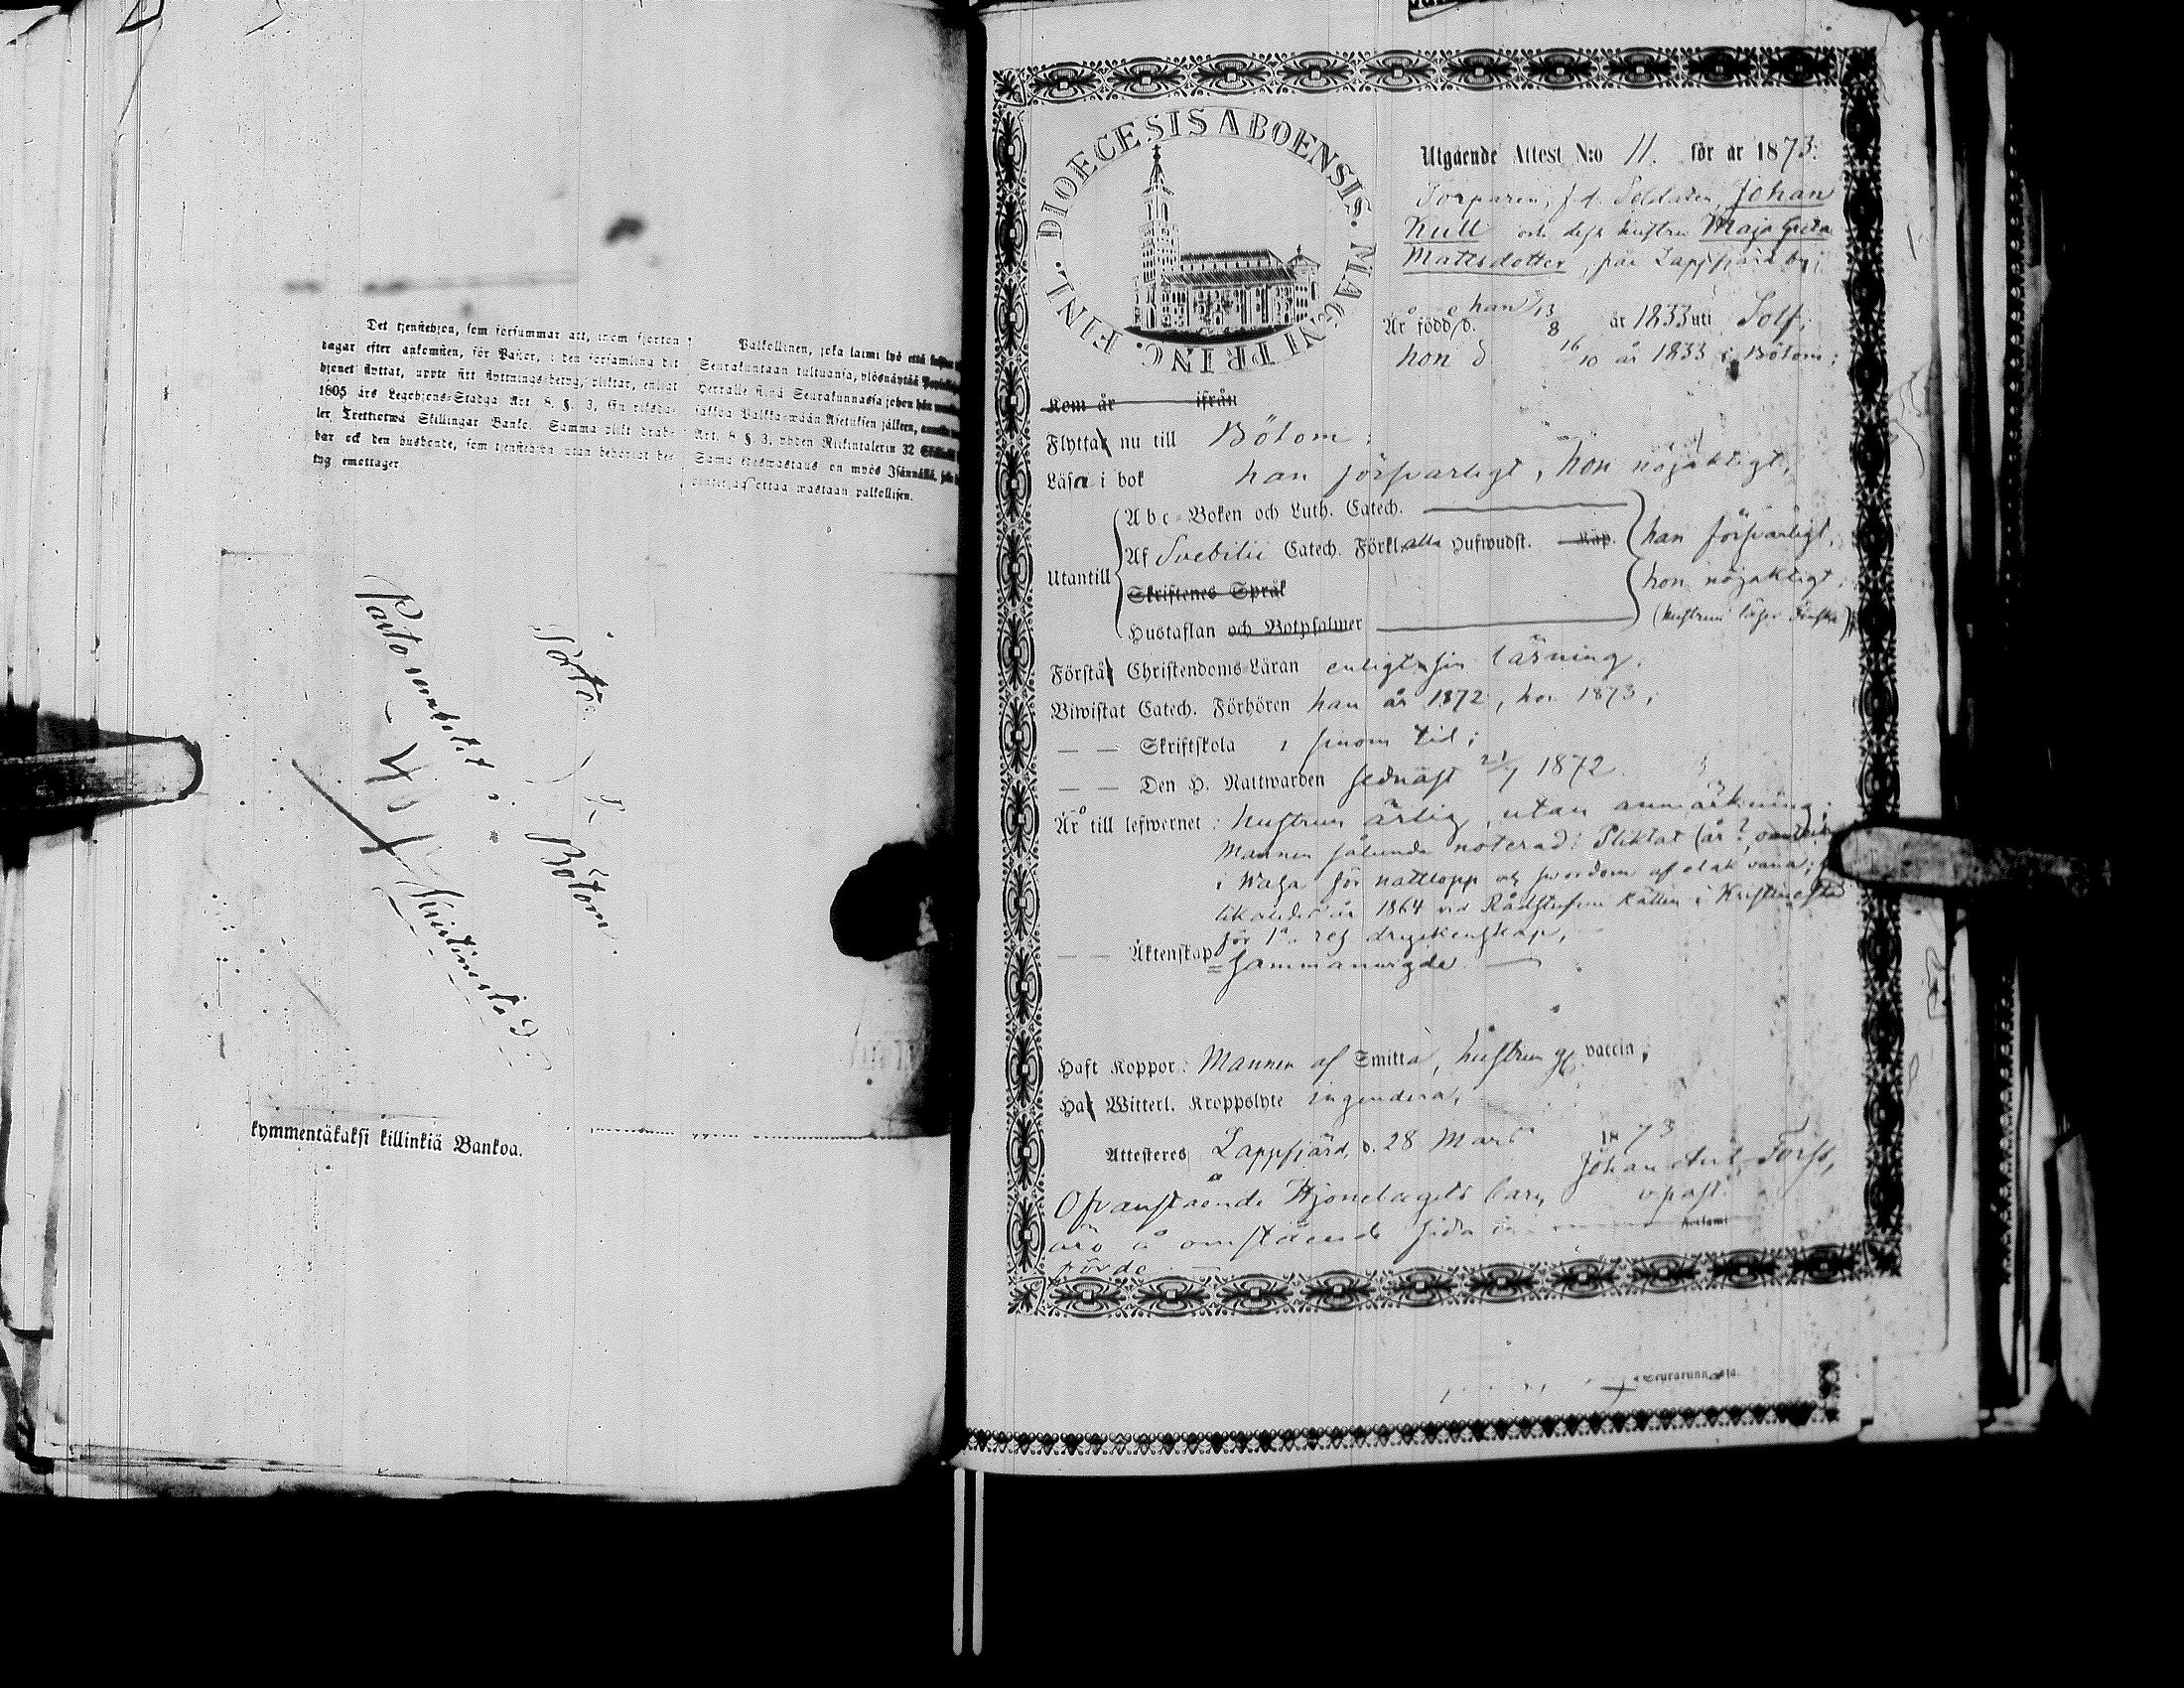 Det tjenstehjon, som försummar att, inom fjorton
dagar efter ankomsten, för Pastor, i den församling dit
hjonet flyttat, uppte sitt flyttnings-betyg, pliktar, enligt
1805 års Legohjons-Stadga Art. 8. §. 3, En riksda-
ler Trettiotwå Skillingar Banko. Samma plikt drab-
bar ock den husbonde, som tjenstehjon utan behörigt be-
tyg emottager.
Palkollinen, joka laimi lyö että
Seurakuntaan tultuansa, ylösnäyttää
Herralle siinä Seurakunnassa johon hän
sakkoa Palkka-wään Asetuksen jälkeen,
Art. 8 § 3, yhden Riikintalerin 32
Sama edeswastaus on myös Isännällä,
ottaa wastaan palkollisen.
Pastorsembetet i
Kristinestad
Bötom.
kymmentäkaksi killinkiä Bankoa.
DIOECESIS ABOENSIS. MAGNI PRINC. FINL.
Utgående Attest N:o 11. för år 1873.
Torparen, f.d. Soldaten, Johan
Kull och dess hustru Maja Greta
Mattsdotter, från Lappfjärd by;
Är född, han d. 13/8 år 1833 uti Solf;
hon d. 16/10 år 1833 i Bötom;
Kom år ifrån
Flytta nu till Bötom;
Läsa i bok han försvarligt, hon nöjaktigt,
Abc-Boken och Luth. Catech.
Utantill Af Svebilii Catech. Förkl. alla Hufwudst. Kap. han försvarligt,
Skriftenes Språk hon nöjaktigt,
Hustaflan och Botpsalmer (hustrun läser Finska)
Förstå Christendoms-Läran enligt sin lärning,
Biwistat Catech. Förhören han år 1872, hon 1873,
— — Skriftskola i sinom tid;
— — Den H. Nattwarden sednast 21/7 1872.
Äro till lefwernet: hustrun ärlig, utan anmärkning;
Mannen sålunda noterad: Pliktat (år?
i Wasa för nattlopp och svordom af elak vana;
likaledes år 1864 vid Rådstufvu Rätten i Kristinestad
för 1:a res. dryckenskap,
— — Äktenskap sammanvigde —
Haft Koppor: Mannen af Smitta, hustrun gf. vaccin,
Ha Witterl. Kroppslyte ingendera,
Attesteres Lappfjärd, d. 28 Mars 1873
Johan Ant. Forss,
v.past.
Ofvanstående Hjonelagets barn
äro å omstående sida in-
förde. —